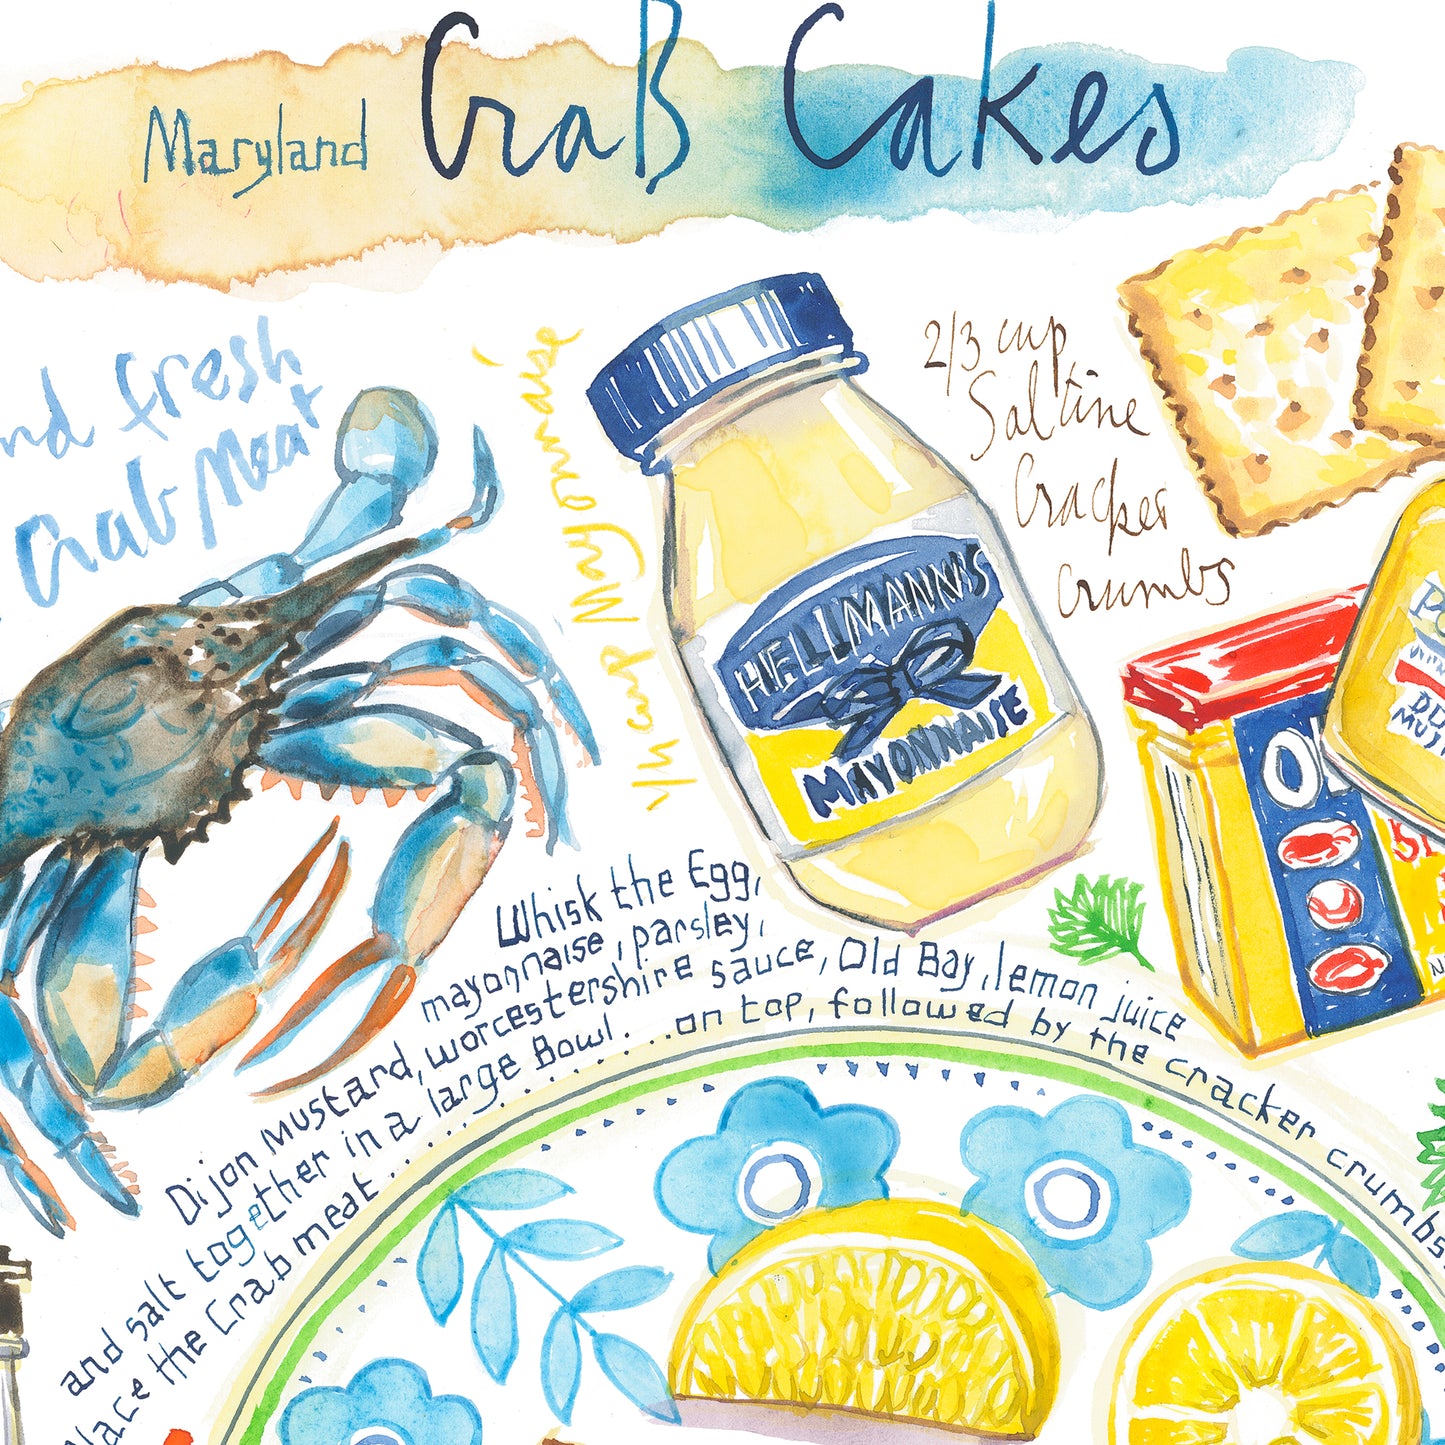 Maryland CraB Cakes
fresh
Crab Meat
1/4 cup Mayonnaise
HELLMANN'S
MAYONNAISE
2/3 cup
Saltine
Cracker
crumbs
OL
Whisk the Egg,
mayonnaise, parsley,
Dijon mustard, worcestershire sauce, Old Bay, lemon juice
and salt together in a large Bowl....
the Crab meat............on top, followed by the cracker crumbs